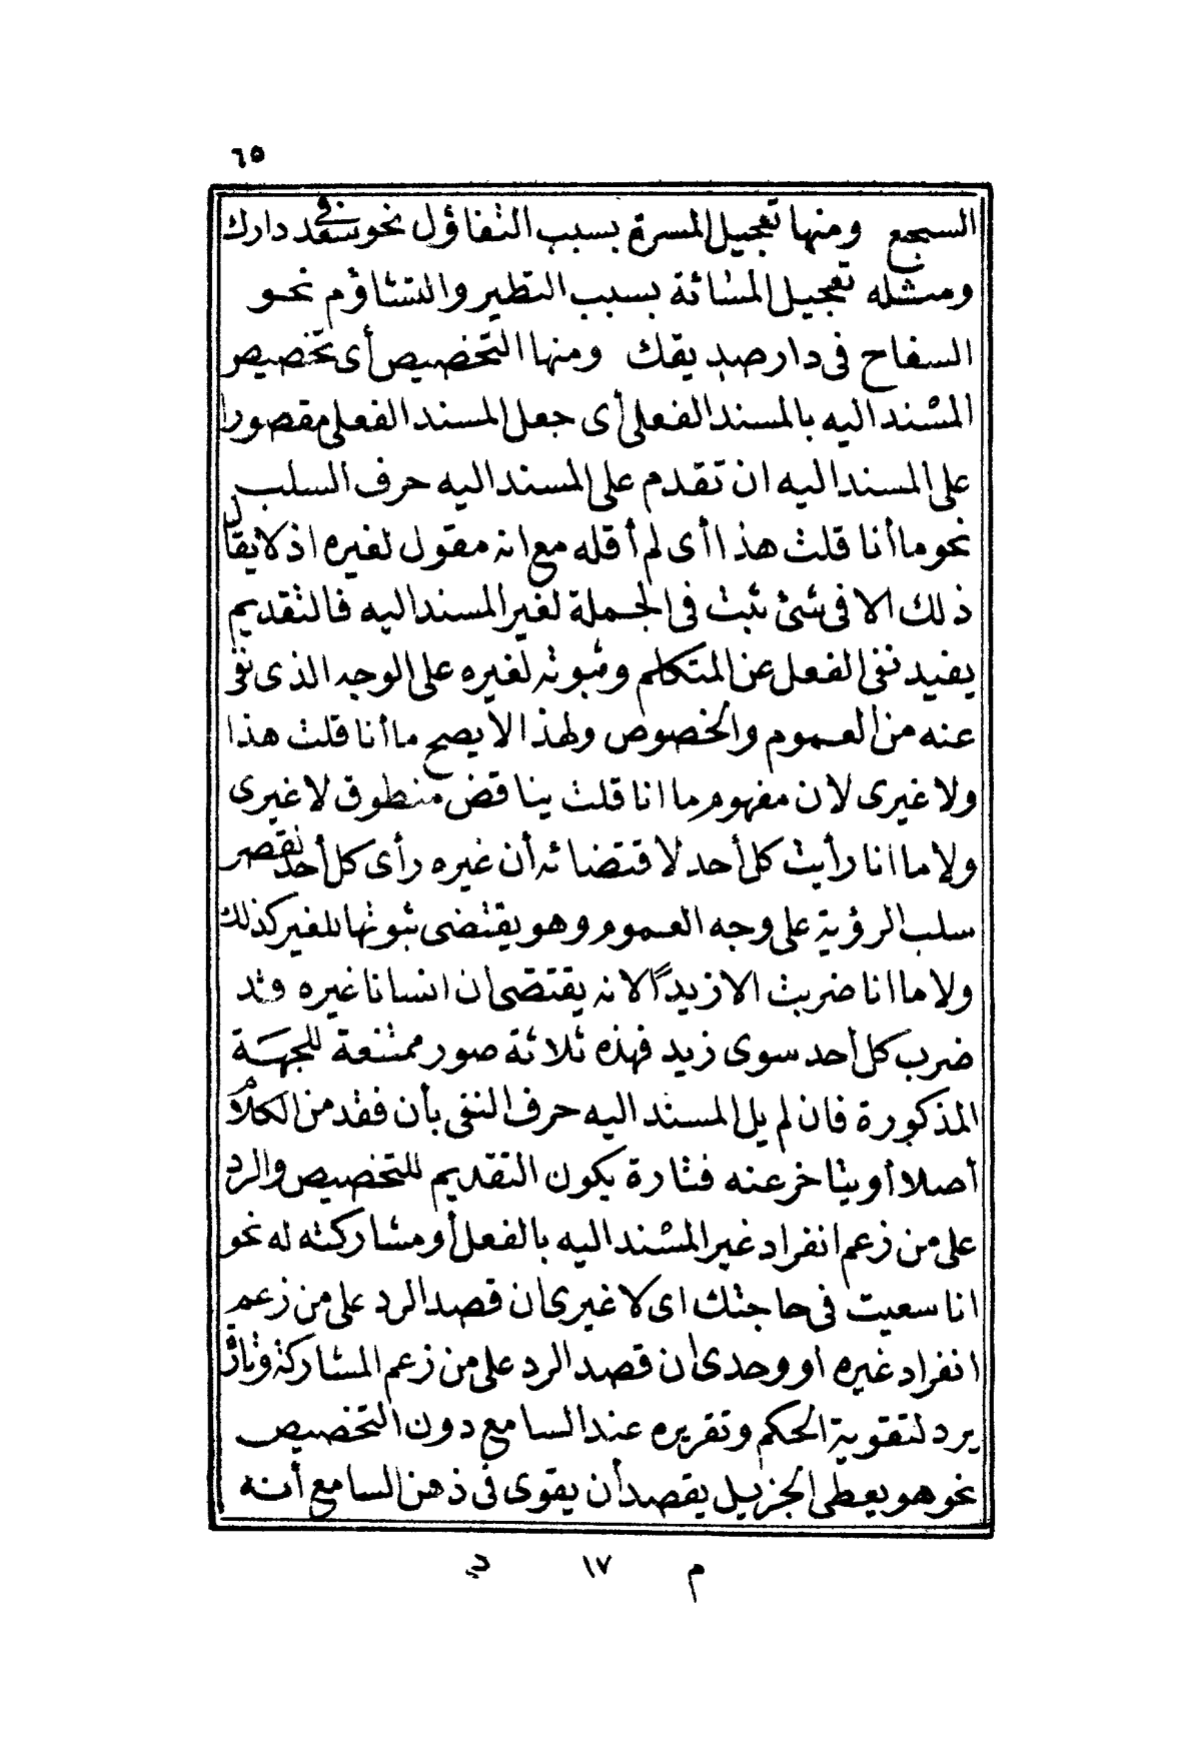 ٦٥
السجع ومنها تعجيل المسرة بسبب التفاؤل نحو سعد في دارك
ومثله تعجيل المسائة بسبب التطير والتشاؤم نحو
السفاح فى دار صديقك ومنها التخصيص أى تخصيص
المسند اليه بالمسند الفعلى أى جعل المسند الفعلى مقصورا
على المسند اليه ان تقدم على المسند اليه حرف السلب
نحو ما أنا قلت هذا أى لم أقله مع انه مقول لغيره اذ لا يقال
ذلك الا فى شئ ثبت فى الجملة لغير المسند اليه فالتقديم
يفيد نفى الفعل عن المتكلم وثبوته لغيره على الوجه الذى نفى
عنه من العموم والخصوص ولهذا لا يصح ما أنا قلت هذا
ولا غيرى لان مفهوم ما انا قلت يناقض منطوق لا غيرى
ولا ما انا رأيت كل أحد لاقتضائه أن غيره رأى كل أحد لقصر
سلب الرؤية على وجه العموم وهو يقتضى ثبوتها للغير كذلك
ولا ما انا ضربت الا زيدًا لانه يقتضى ان انسانا غيره قد
ضرب كل أحد سوى زيد فهذه ثلاثة صور ممتنعة للجهة
المذكورة فان لم يل المسند اليه حرف النفى بأن فقد من الكلام
أصلا أو يتأخر عنه فتارة يكون التقديم للتخصيص والرد
على من زعم انفراد غير المسند اليه بالفعل أو مشاركته له نحو
انا سعيت فى حاجتك اى لا غيرى ان قصد الرد على من زعم
انفراد غيره او وحدى ان قصد الرد على من زعم المشاركة وتارة
يرد لتقوية الحكم وتقريره عند السامع دون التخصيص
نحو هو يعطى الجزيل يقصد أن يقوى فى ذهن السامع أنه
م ١٧ د